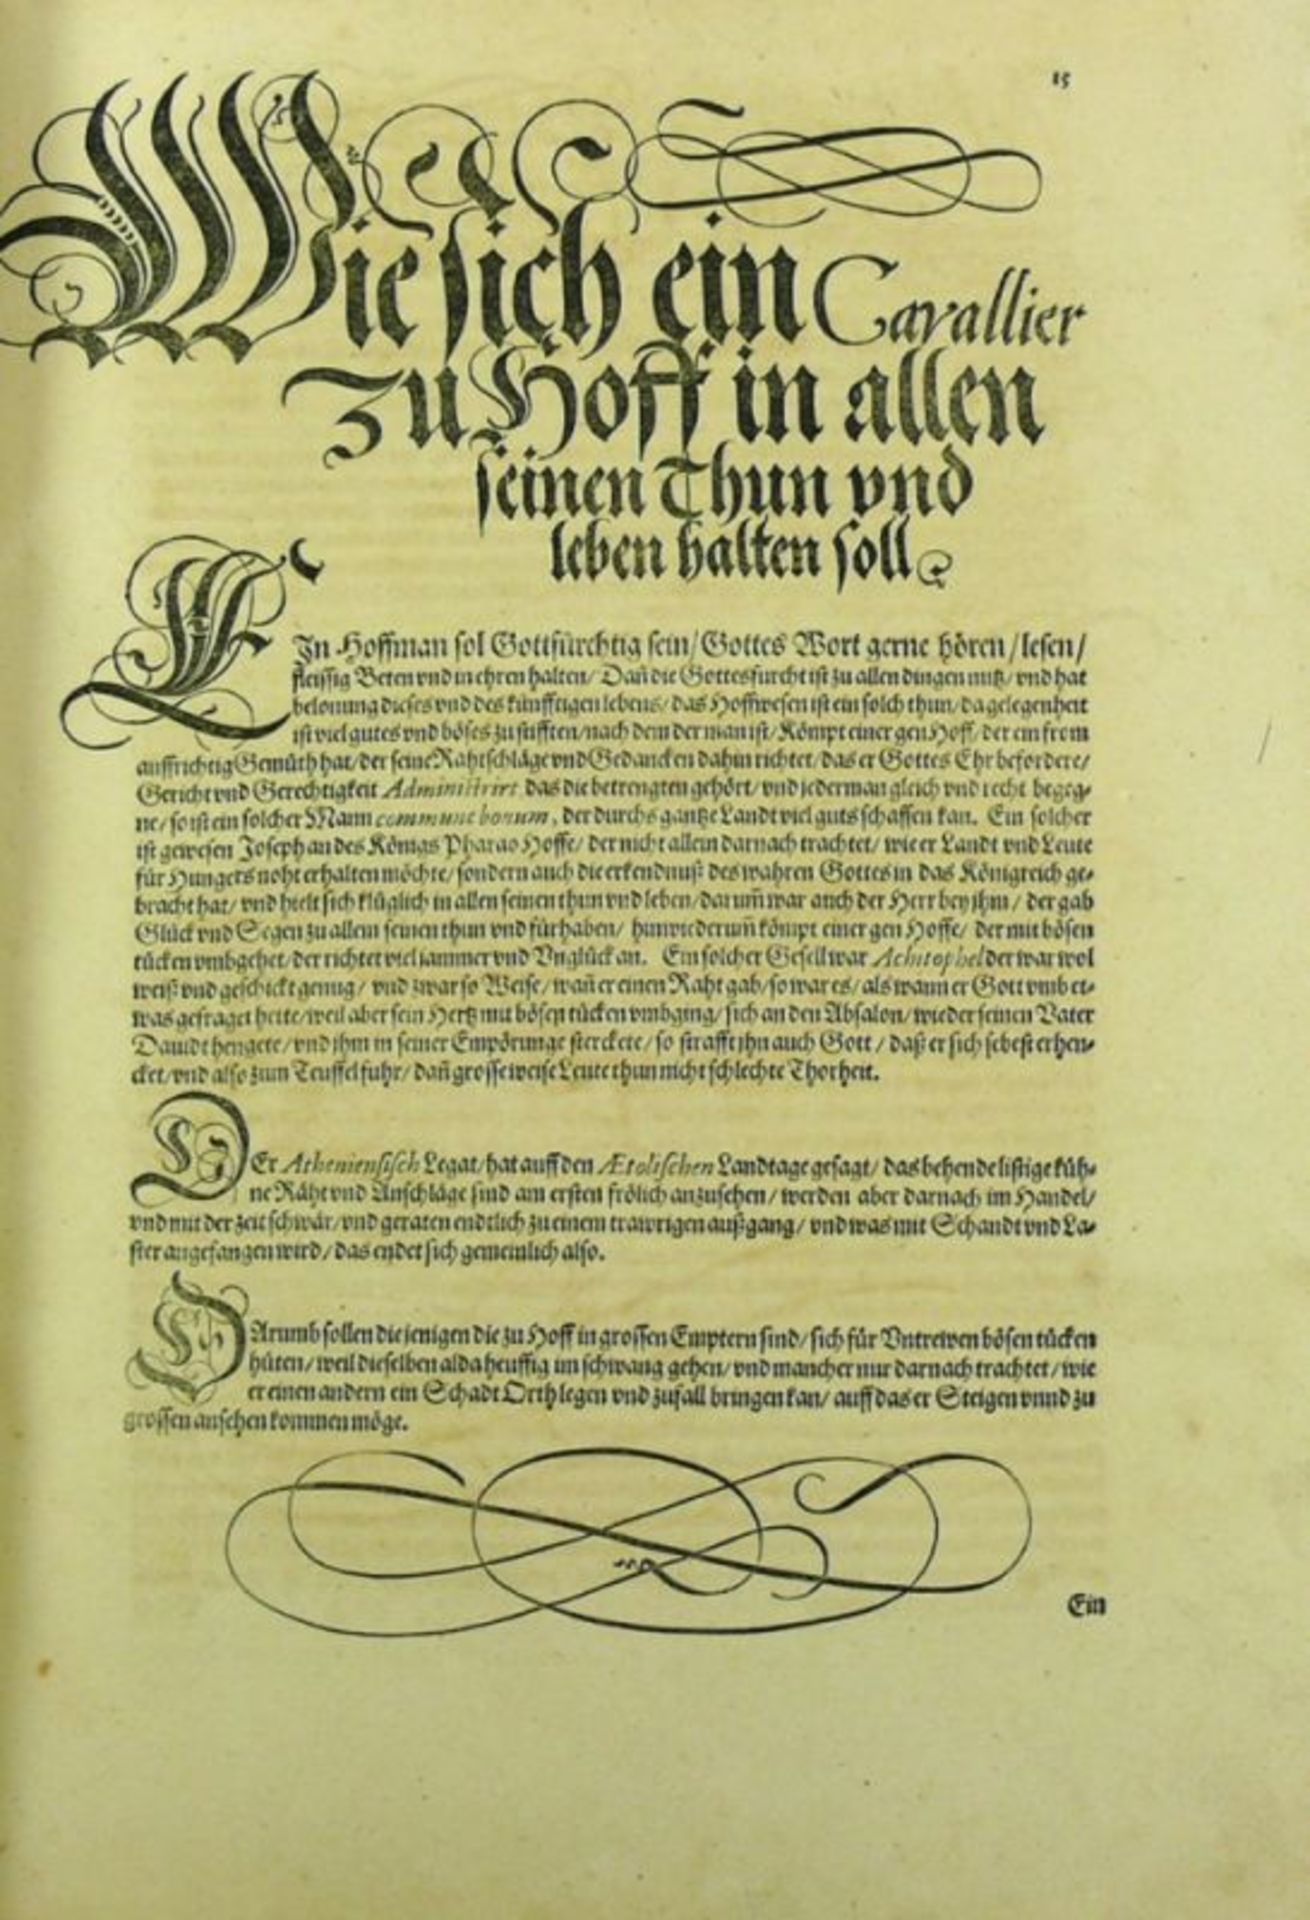 15
Wie sich ein Cavallier
zu Hoff in allen
seinen Thun vnd
leben halten soll.
EIn Hoffman sol Gottfürchtig sein/ Gottes Wort gerne hören/ lesen/
fleissig Beten vnd in ehren halten/ Dañ die Gottesfurcht ist zu allen dingen nutz/ vnd hat
belonung dieses vnd des künfftigen lebens/ das Hoffwesen ist ein solch thun/ da gelegenheit
ist viel gutes vnd böses zu stifften/ nach dem der man ist/ Kömpt einer gen Hoff/ der ein from
auffrichtig Gemüth hat/ der seine Rahtschläge vnd Gedancken dahin richtet/ das er Gottes Ehr befordere/
Gericht vnd Gerechtigkeit Administrirt das die betrengten gehört/ vnd jederman gleich vnd recht begeg-
ne/ so ist ein solcher Mann commune bonum, der durchs gantze Landt viel guts schaffen kan. Ein solcher
ist gewesen Joseph an des Königs Pharao Hoffe/ der nicht allein darnach trachtet/ wie er Landt vnd Leute
für Hungers noht erhalten möchte/ sondern auch die erkendnuß des wahren Gottes in das Königreich ge-
bracht hat/ vnd hielt sich klüglich in allen seinen thun vnd leben/ darum̃ war auch der Herr bey ihm/ der gab
Glück vnd Segen zu allem seinen thun vnd fürhaben/ hinwiederum̃ kömpt einer gen Hoffe/ der mit bösen
tücken vmbgehet/ der richtet viel jammer vnd Vnglück an. Ein solcher Gesell war Achitophel der war wol
weiß vnd geschickt genug/ vnd zwar so Weise/ wañ er einen Raht gab/ so war es/ als wann er Gott vmb et-
was gefraget hette/ weil aber sein Hertz mit bösen tücken vmbging/ sich an den Absalon/ wieder seinen Vater
Dauidt hengete/ vnd ihm in seiner Empörunge sterckete/ so strafft ihn auch Gott/ daß er sich selbest erhen-
cket/ vnd also zum Teuffel fuhr/ dañ grosse weise Leute thun nicht schlechte Thorheit.
DEr Atheniensisch Legat/ hat auff den Ætolischen Landtage gesagt/ das behende listige küh-
ne Räht vnd Anschläge sind am ersten frölich anzusehen/ werden aber darnach im Handel/
vnd mit der zeit schwär/ vnd geraten endtlich zu einem trawrigen außgang/ vnd was mit Schandt vnd La-
ster angefangen wird/ das endet sich gemeinlich also.
DArumb sollen die jenigen die zu Hoff in grossen Emptern sind/ sich für Vntrewen bösen tücken
hüten/ weil dieselben alda heuffig im schwang gehen/ vnd mancher nur darnach trachtet/ wie
er einen andern ein Schadt Orth legen vnd zufall bringen kan/ auff das er Steigen vnnd zu
grossen ansehen kommen möge.
Ein